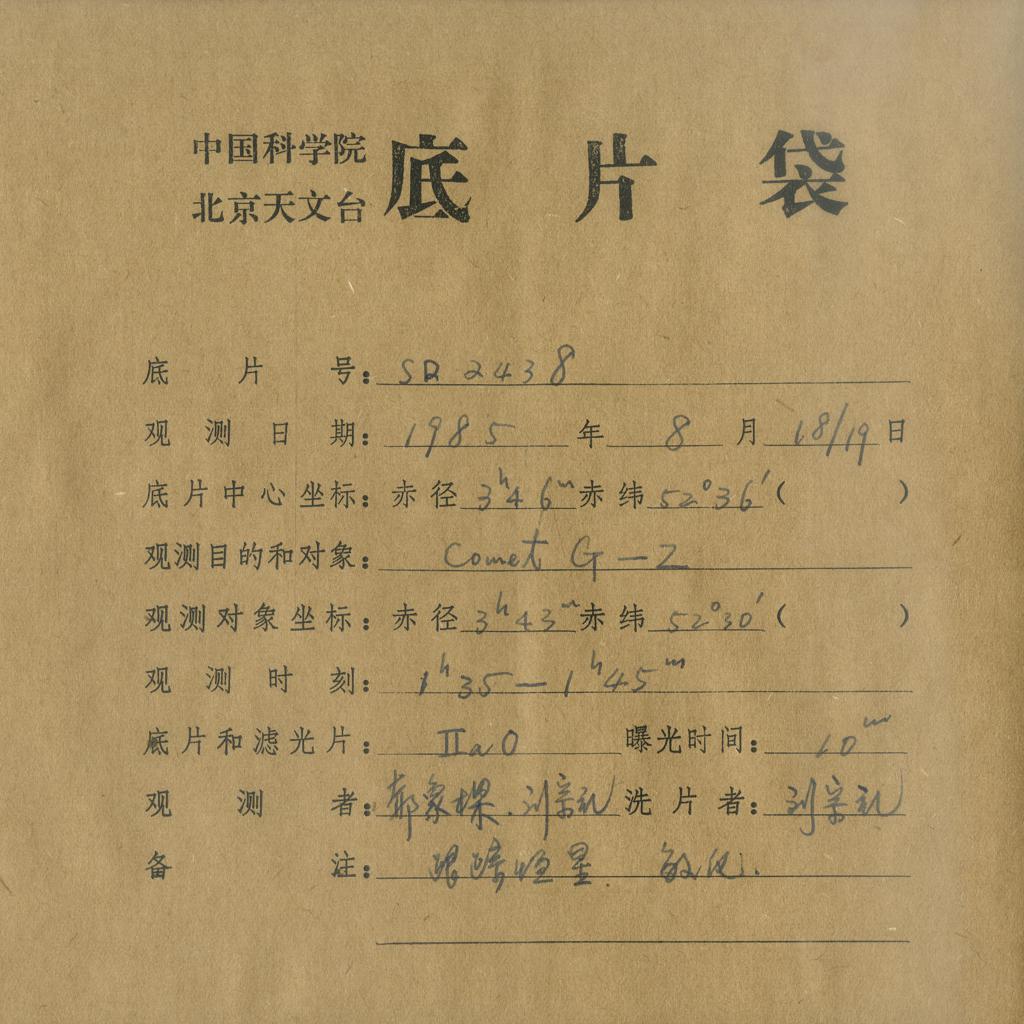 中国科学院
北京天文台
底片袋
底片号：SD 2438
观测日期：1985年8月18/19日
底片中心坐标：赤径 3h46m 赤纬 52°36′（ ）
观测目的和对象：Comet G—Z
观测对象坐标：赤径 3h43m 赤纬 52°30′（ ）
观测时刻：1h35—1h45m
底片和滤光片：IIaO 曝光时间：10m
观测者：刘宗礼 洗片者：刘宗礼
备注：跟踪恒星. 敏化.